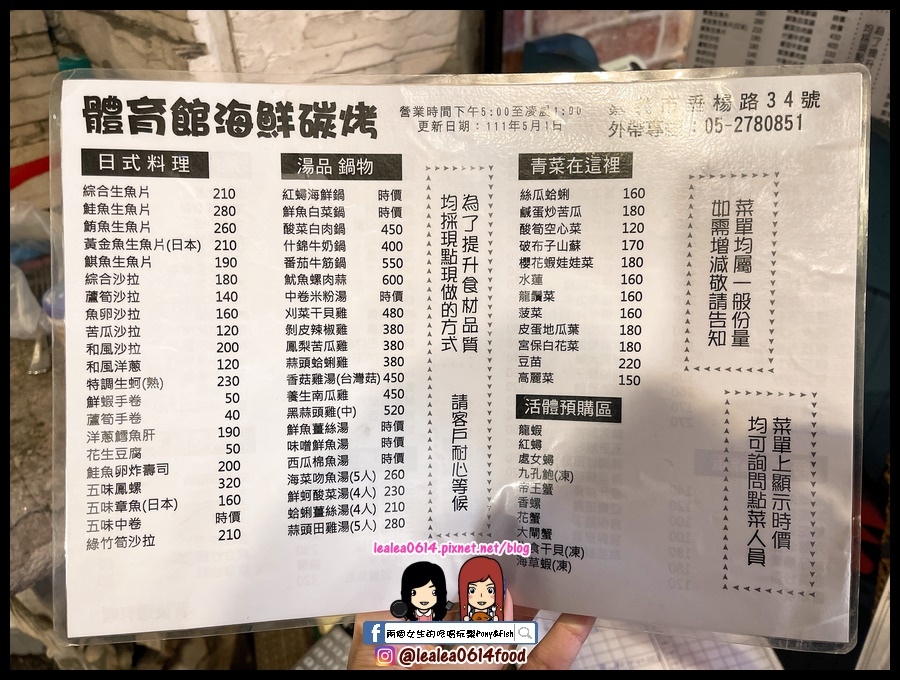 體育館海鮮碳烤
營業時間下午5:00至凌晨1:00
更新日期：111年5月1日
市 楊路34號
外帶專 ：05-2780851
日式料理
綜合生魚片 210
鮭魚生魚片 280
鮪魚生魚片 260
黃金魚生魚片(日本) 210
鯕魚生魚片 190
綜合沙拉 180
蘆筍沙拉 140
魚卵沙拉 160
苦瓜沙拉 120
和風沙拉 200
和風洋蔥 120
特調生蚵(熟) 230
鮮蝦手卷 50
蘆筍手卷 40
洋蔥鱈魚肝 190
花生豆腐 50
鮭魚卵炸壽司 200
五味鳳螺 320
五味章魚(日本) 160
五味中卷 時價
綠竹筍沙拉 210
湯品 鍋物
紅蟳海鮮鍋 時價
鮮魚白菜鍋 時價
酸菜白肉鍋 450
什錦牛奶鍋 400
番茄牛筋鍋 550
魷魚螺肉蒜 600
中卷米粉湯 時價
刈菜干貝雞 480
剝皮辣椒雞 380
鳳梨苦瓜雞 380
蒜頭蛤蜊雞 380
香菇雞湯(台灣菇) 450
養生南瓜雞 450
黑蒜頭雞(中) 520
鮮魚薑絲湯 時價
味噌鮮魚湯 時價
西瓜棉魚湯 時價
海菜吻魚湯(5人) 260
鮮蚵酸菜湯(4人) 230
蛤蜊薑絲湯(4人) 210
蒜頭田雞湯(5人) 280
為了提升食材品質
均採現點現做的方式
請客戶耐心等候
青菜在這裡
絲瓜蛤蜊 160
鹹蛋炒苦瓜 180
酸筍空心菜 120
破布子山蘇 170
櫻花蝦娃娃菜 180
水蓮 160
龍鬚菜 160
菠菜 160
皮蛋地瓜葉 180
宮保白花菜 180
豆苗 220
高麗菜 150
活體預購區
龍蝦
紅蟳
處女蟳
九孔鮑(凍)
帝王蟹
香螺
花蟹
大閘蟹
食干貝(凍)
海草蝦(凍)
菜單均屬一般份量
如需增減敬請告知
菜單上顯示時價
均可詢問點菜人員
lealea0614.pixnet.net/blog
兩個女生的吃喝玩樂Pony&Fish
@lealea0614food